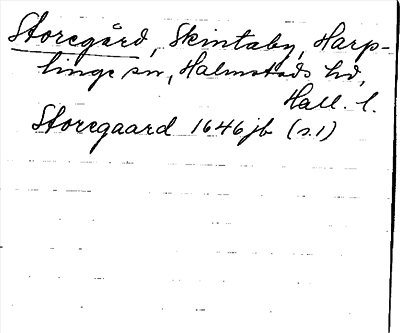 Storegård, Skintaby, Harp-
linge sn, Halmstads hd,
Hall. l.
Storegaard 1646 jb (s. 1)